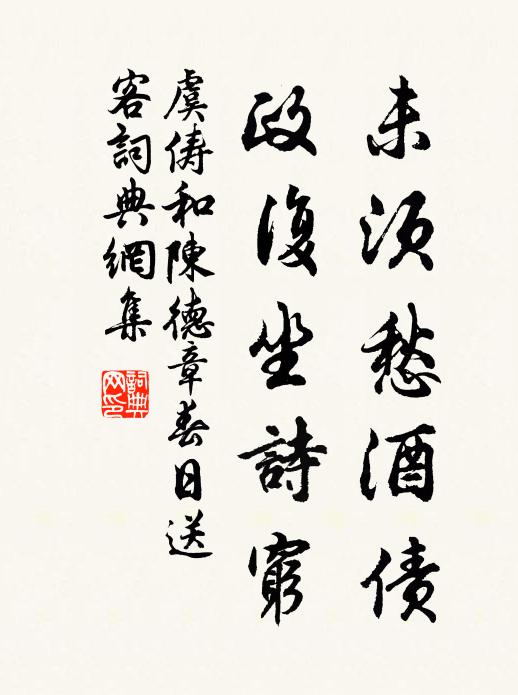 未須愁酒債
政復坐詩窮
虞儔和陳德章春日送
客詞典網集
詞典
网印